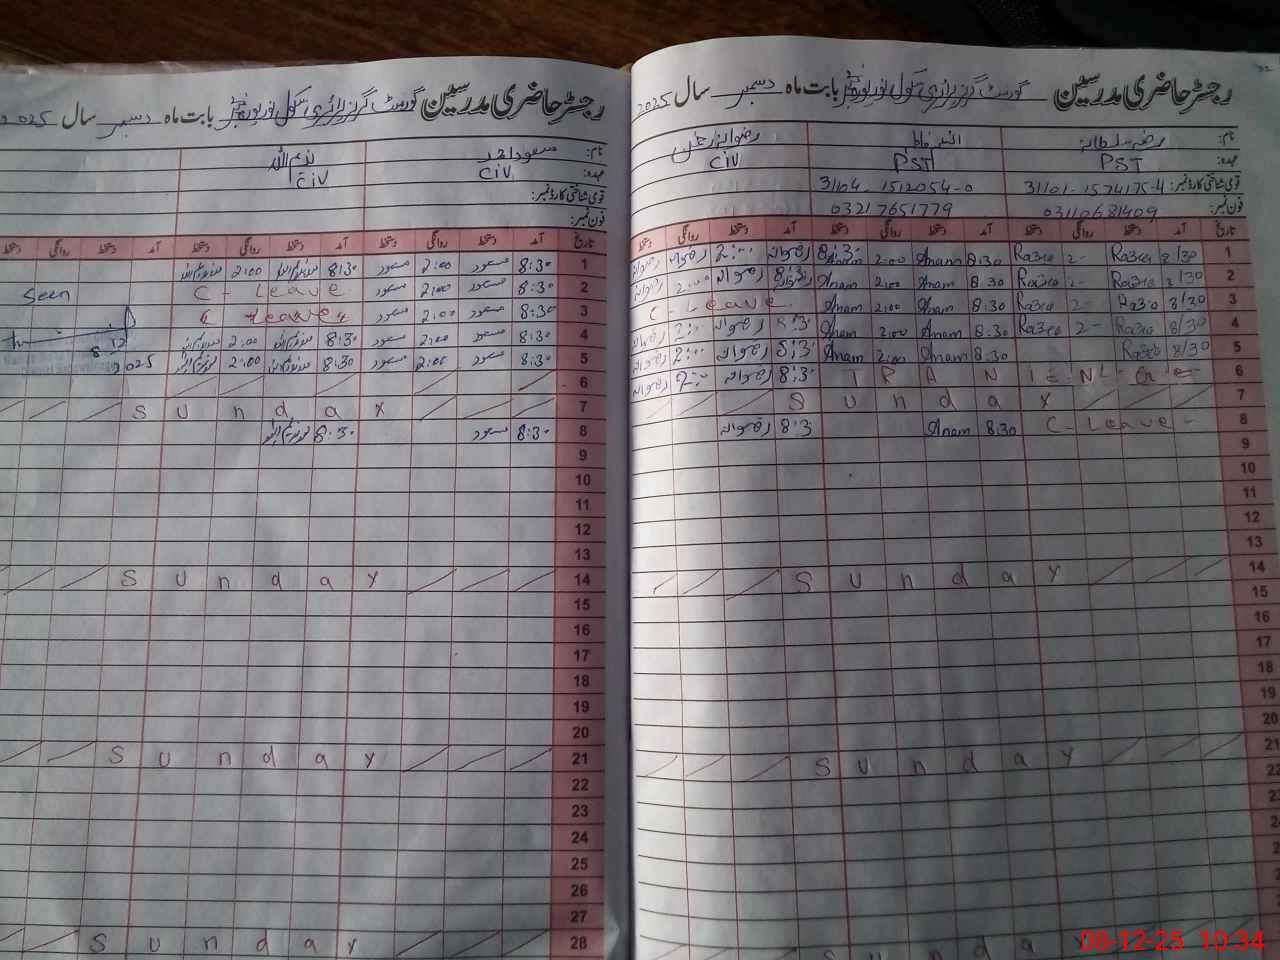 رجسٹر حاضری مدرسین گورنمنٹ گرلز پرائمری سکول بابت ماہ دسمبر سال 2025
نام: رضیہ سلطانہ
عہدہ: PST PST CiV
قومی شناختی کارڈ نمبر: 31101-1574175-4 31104-1512054-0
فون نمبر: 03110681409 03217651779
تاریخ آمد دستخط روانگی دستخط آمد دستخط روانگی دستخط آمد دستخط روانگی دستخط
1 8/30 Razia 2- Razia 8:30 Anam 2:00 Anam 8:30 رضوانہ 2:00 رضوانہ
2 8/30 Razia 2- Razia 8:30 Anam 2:00 Anam 8:30 رضوانہ 2:00 رضوانہ
3 8/30 Razia 2- Razia 8:30 Anam 2:00 Anam C - Leave
4 8/30 Razia 2- Razia 8:30 Anam 2:00 Anam 8:30 رضوانہ 2:00 رضوانہ
5 8/30 Razia 8:30 Anam 2:00 Anam 8:30 رضوانہ 2:00 رضوانہ
6 T R A N I 8:30 رضوانہ 2:00 رضوانہ
7 S u n d a y
8 C - Leave - 8:30 Anam 8:30 رضوانہ
9
10
11
12
13
14 S u n d a y
15
16
17
18
19
20
21 S u n d a y
22
23
S u n d a y
رجسٹر حاضری مدرسین گورنمنٹ گرلز پرائمری سکول بابت ماہ دسمبر سال 2025
نام: مسعود احمد ندیم اللہ
عہدہ: CiV CiV
قومی شناختی کارڈ نمبر:
فون نمبر:
تاریخ آمد دستخط روانگی دستخط آمد دستخط روانگی دستخط آمد دستخط روانگی
1 8:30 مسعود 2:00 مسعود 8:30 2:00
2 8:30 مسعود 2:00 مسعود C - Leave Seen
3 8:30 مسعود 2:00 مسعود C Leave
4 8:30 مسعود 2:00 مسعود 8:30 2:00 8.12
5 8:30 مسعود 2:00 مسعود 8:30 2:00 2025
6
7 S u n d a y
8 8:30 مسعود 8:30
9
10
11
12
13
14 S u n d a y
15
16
17
18
19
20
21 S u n d a y
22
23
24
25
26
27
28 S u n d a y
08-12-25 10:34